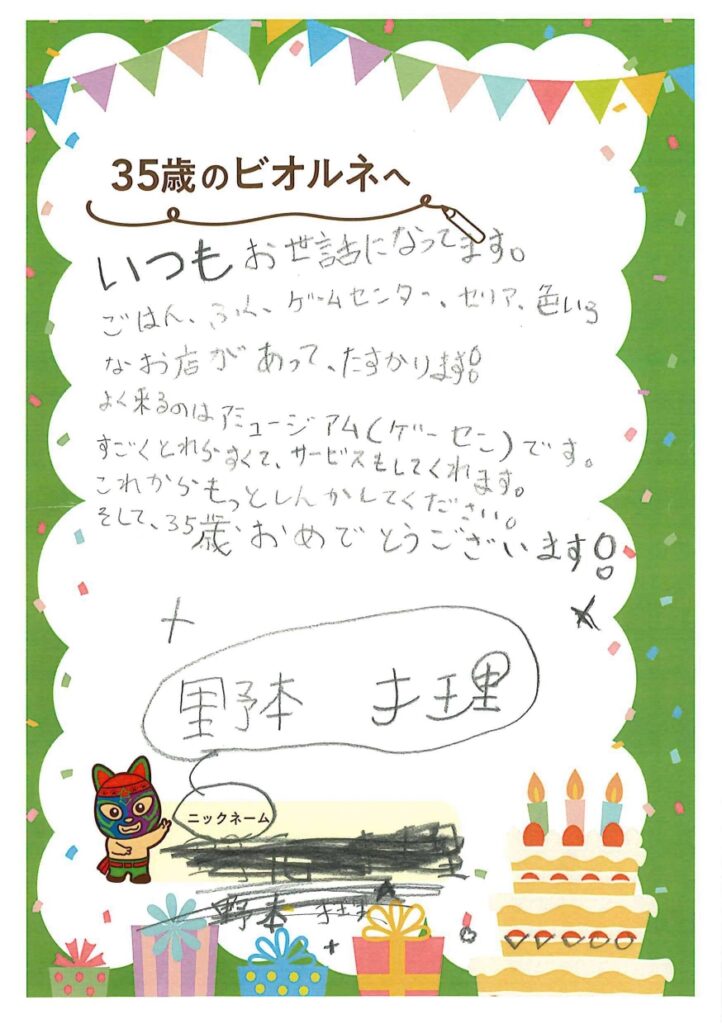 35歳のビオルネへ
いつもお世話になってます。
ごはん、ふく、ゲームセンター、セリア、色いろ
なお店があって、たすかります!!
よく来るのはアミュージアム(ゲーセン)です。
すごくとれやすくて、サービスもしてくれます。
これからもっとしんかしてください。
そして、35歳、おめでとうございます!
野本 才理
ニックネーム
野本